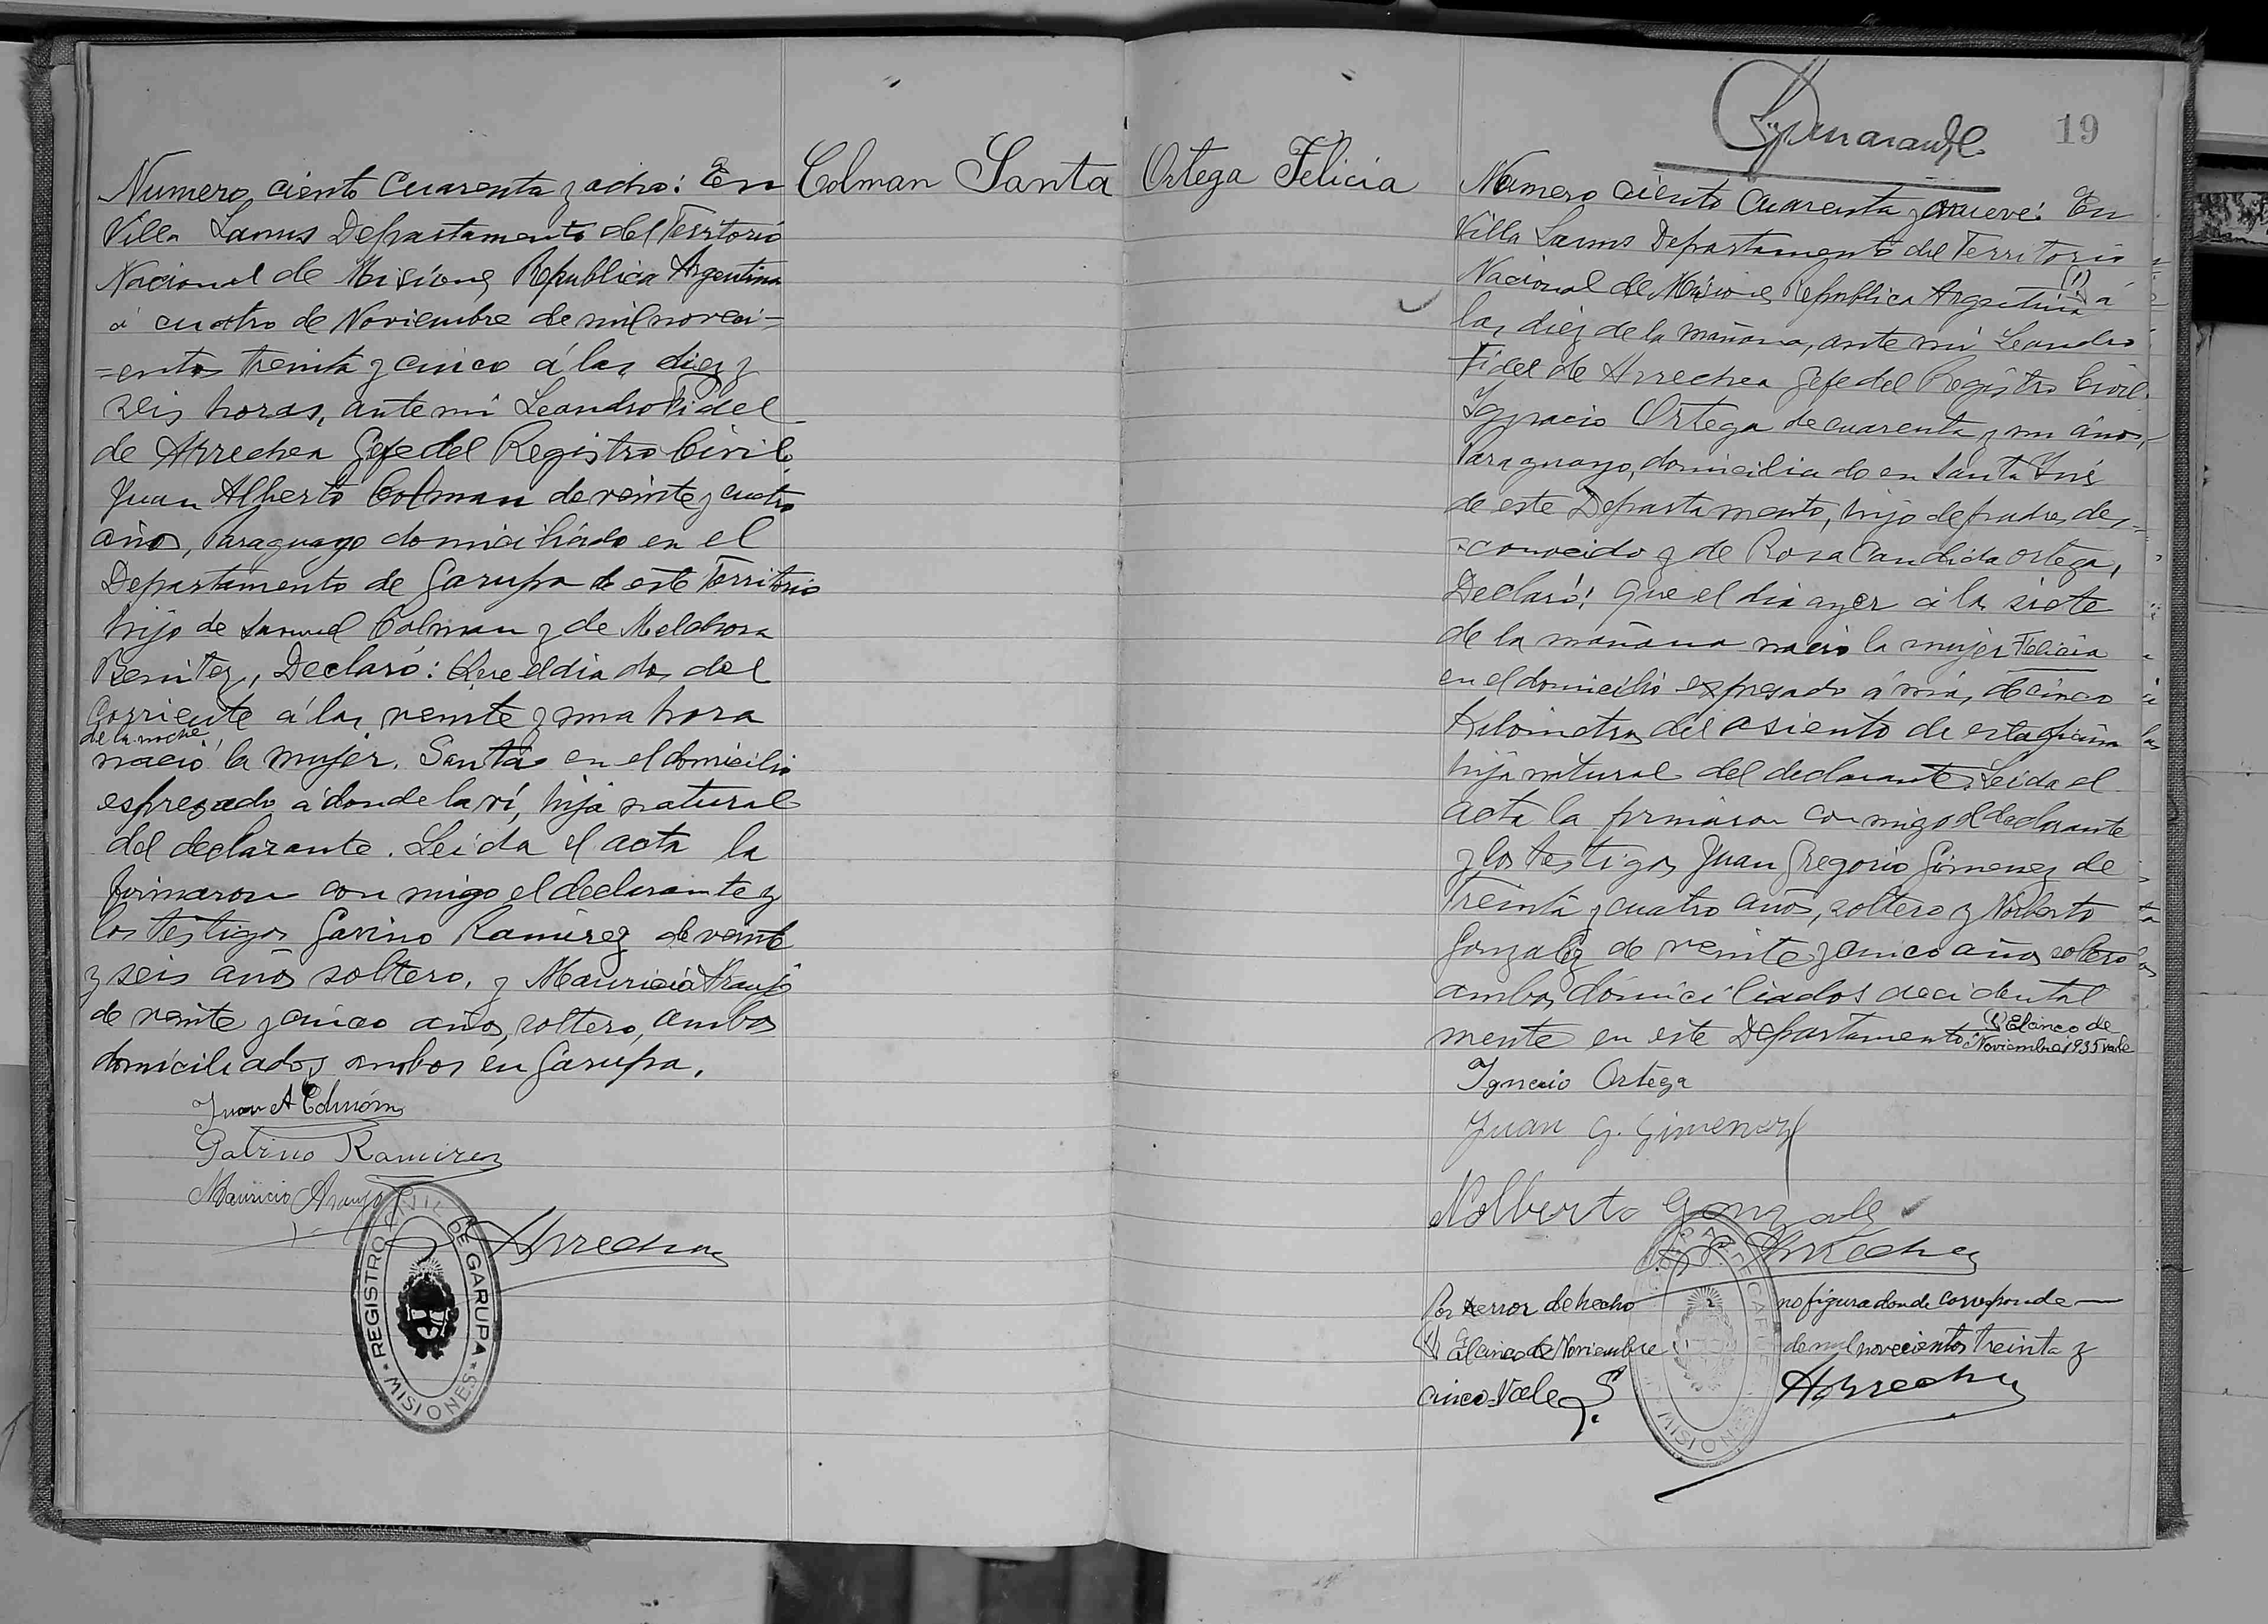 Colman Santa
Numero ciento cuarenta y ocho: En
Villa Lanus Departamento del Territorio
Nacional de Misiones Republica Argentina
á cuatro de Noviembre de mil noveci=
=entos treinta y cinco á las diez y
seis horas, ante mi Leandro Fidel
de Arrechea Gefe del Registro Civil
Juan Alberto Colman de veinte y cuatro
años, Paraguayo domiciliado en el
Departamento de Garupa de este Territorio
hijo de Samuel Colman y de Melchora
Benitez, Declaró: Que el dia dos del
corriente á las veinte y una hora
de la noche
nació la mujer. Santa en el domicilio
espresado a donde la ví, hija natural
del declarante. Leida el acta la
firmaron con migo el declarante y
los testigos Gavino Ramirez de veinte
y seis años soltero, y Mauricio Araujo
de veinte y cinco años, soltero, ambos
domiciliados ambos en Garupa.
Juan A Colmán
Gabino Ramirez
Mauricio Araujo
Arrechea
REGISTRO CIVIL DE GARUPA
MISIONES
19
Ortega Felicia
Numero ciento cuarenta y nueve: En
Villa Lanus Departamento del Territorio
Nacional de Misiones Republica Argentina (1) a
las diez de la mañana, ante mi Leandro
Fidel de Arrechea Gefe del Registro Civil
Ignacio Ortega de cuarenta y un años,
Paraguayo, domiciliado en Santa Inés
de este Departamento, hijo de padre des=
=conocido y de Rosa Candida Ortega,
Declaró: Que el dia ayer á las siete
de la mañana nació la mujer Felicia
en el domicilio expresado á mia, de cinco
Kilometros del asiento de esta oficina
hija natural del declarante. Leida el
acta la firmaron con migo el declarante
y los testigos Juan Gregorio Gimenez de
treinta y cuatro años, soltero y Norberto
Gonzalez de veinte y cinco años soltero
ambos domiciliados accidental
mente en este Departamento. (1) El cinco de
Noviembre 1935 vale
Ignacio Ortega
Juan G. Gimenez
Nolberto Gonzalez
Arrechea
Por error de hecho no figura donde corresponde
(1) El cinco de Noviembre de mil novecientos treinta y
cinco. Vale
Arrechea
MISIONES